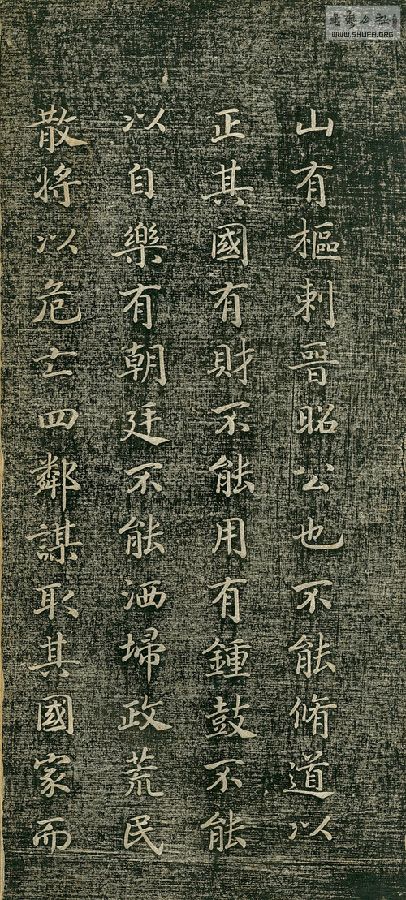 山有樞刺晉昭公也不能脩道以
正其國有財不能用有鍾鼓不能
以自樂有朝廷不能洒埽政荒民
散將以危士四鄰謀取其國家而
WWW.SHUFA.ORG